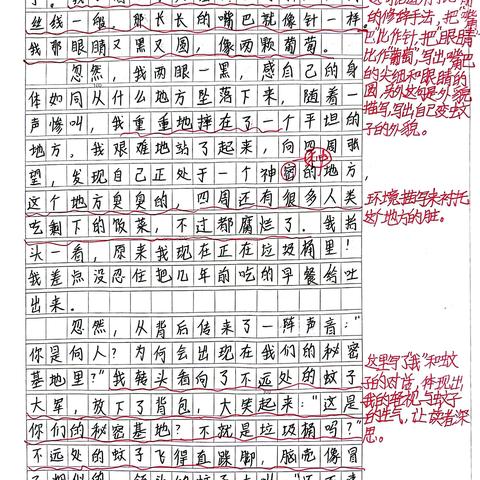 丝线一般，那长长的嘴巴就像针一样。
我那眼睛又黑又圆，像两颗葡萄。
忽然，我两眼一黑，感自己的身
体如同从什么地方坠落下来，随着一
声惨叫，我重重地摔在了一个平坦的
地方。我艰难地站了起来，向四周张
望，发现自己正处于一个神密的地方，
秘
这个地方臭臭的，四周还有很多人类
吃剩下的饭菜，不过都腐烂了。我抬
头一看，原来我现在正在垃圾桶里！
我差点没忍住把几年前吃的早餐给吐
出来。
忽然，从背后传来了一阵声音："
你是何人？为何会出现在我们的秘密
基地里？"我转头看向了不远处的蚊子
大军，放下了背包，大笑起来："这是
你们的秘密基地？不就是垃圾桶吗？"
不远处的蚊子飞得直跺脚，脑壳像冒
的修辞手法，把"嘴
巴"比作针，把"眼睛"
比作"葡萄"，写出嘴巴
的尖细和眼睛的
圆，另外这句是外貌
描写，写出自己变蚊
子的外貌。
环境描写来衬托
这个地方的脏。
这里写了"我"和蚊
子的对话，体现出
我的轻视与蚊子
的生气，让读者深
思。